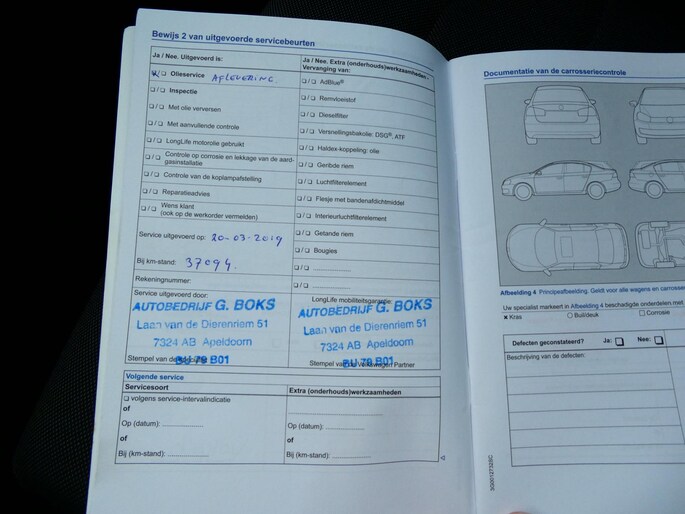 Bewijs 2 van uitgevoerde servicebeurten
Ja / Nee. Uitgevoerd is:
Olieservice AFLEVERING
Inspectie
Met olie verversen
Met aanvullende controle
LongLife motorolie gebruikt
Controle op corrosie en lekkage van de aard-
gasinstallatie
Controle van de koplampafstelling
Reparatieadvies
Wens klant
(ook op de werkorder vermelden)
Service uitgevoerd op: 20-03-2019
Bij km-stand: 37094.
Rekeningnummer:
Service uitgevoerd door:
AUTOBEDRIJF G. BOKS
Laan van de Dierenriem 51
7324 AB Apeldoorn
BU 79 B01
Stempel van de
Ja / Nee. Extra (onderhouds)werkzaamheden -
Vervanging van:
AdBlue®
Remvloeistof
Dieselfilter
Versnellingsbakolie: DSG®, ATF
Haldex-koppeling: olie
Geribde riem
Luchtfilterelement
Flesje met bandenafdichtmiddel
Interieurluchtfilterelement
Getande riem
Bougies
LongLife mobiliteitsgarantie:
AUTOBEDRIJF G. BOKS
Laan van de Dierenriem 51
7324 AB Apeldoorn
BU 79 B01
Stempel van de Volkswagen Partner
Volgende service
Servicesoort
volgens service-intervalindicatie
of
Op (datum):
of
Bij (km-stand):
Extra (onderhouds)werkzaamheden
of
Op (datum):
of
Bij (km-stand):
Documentatie van de carrosseriecontrole
Afbeelding 4 Principeafbeelding. Geldt voor alle wagens en carrosser
Uw specialist markeert in Afbeelding 4 beschadigde onderdelen met
Kras Buil/deuk Corrosie
Defecten geconstateerd? Ja: Nee:
Beschrijving van de defecten: